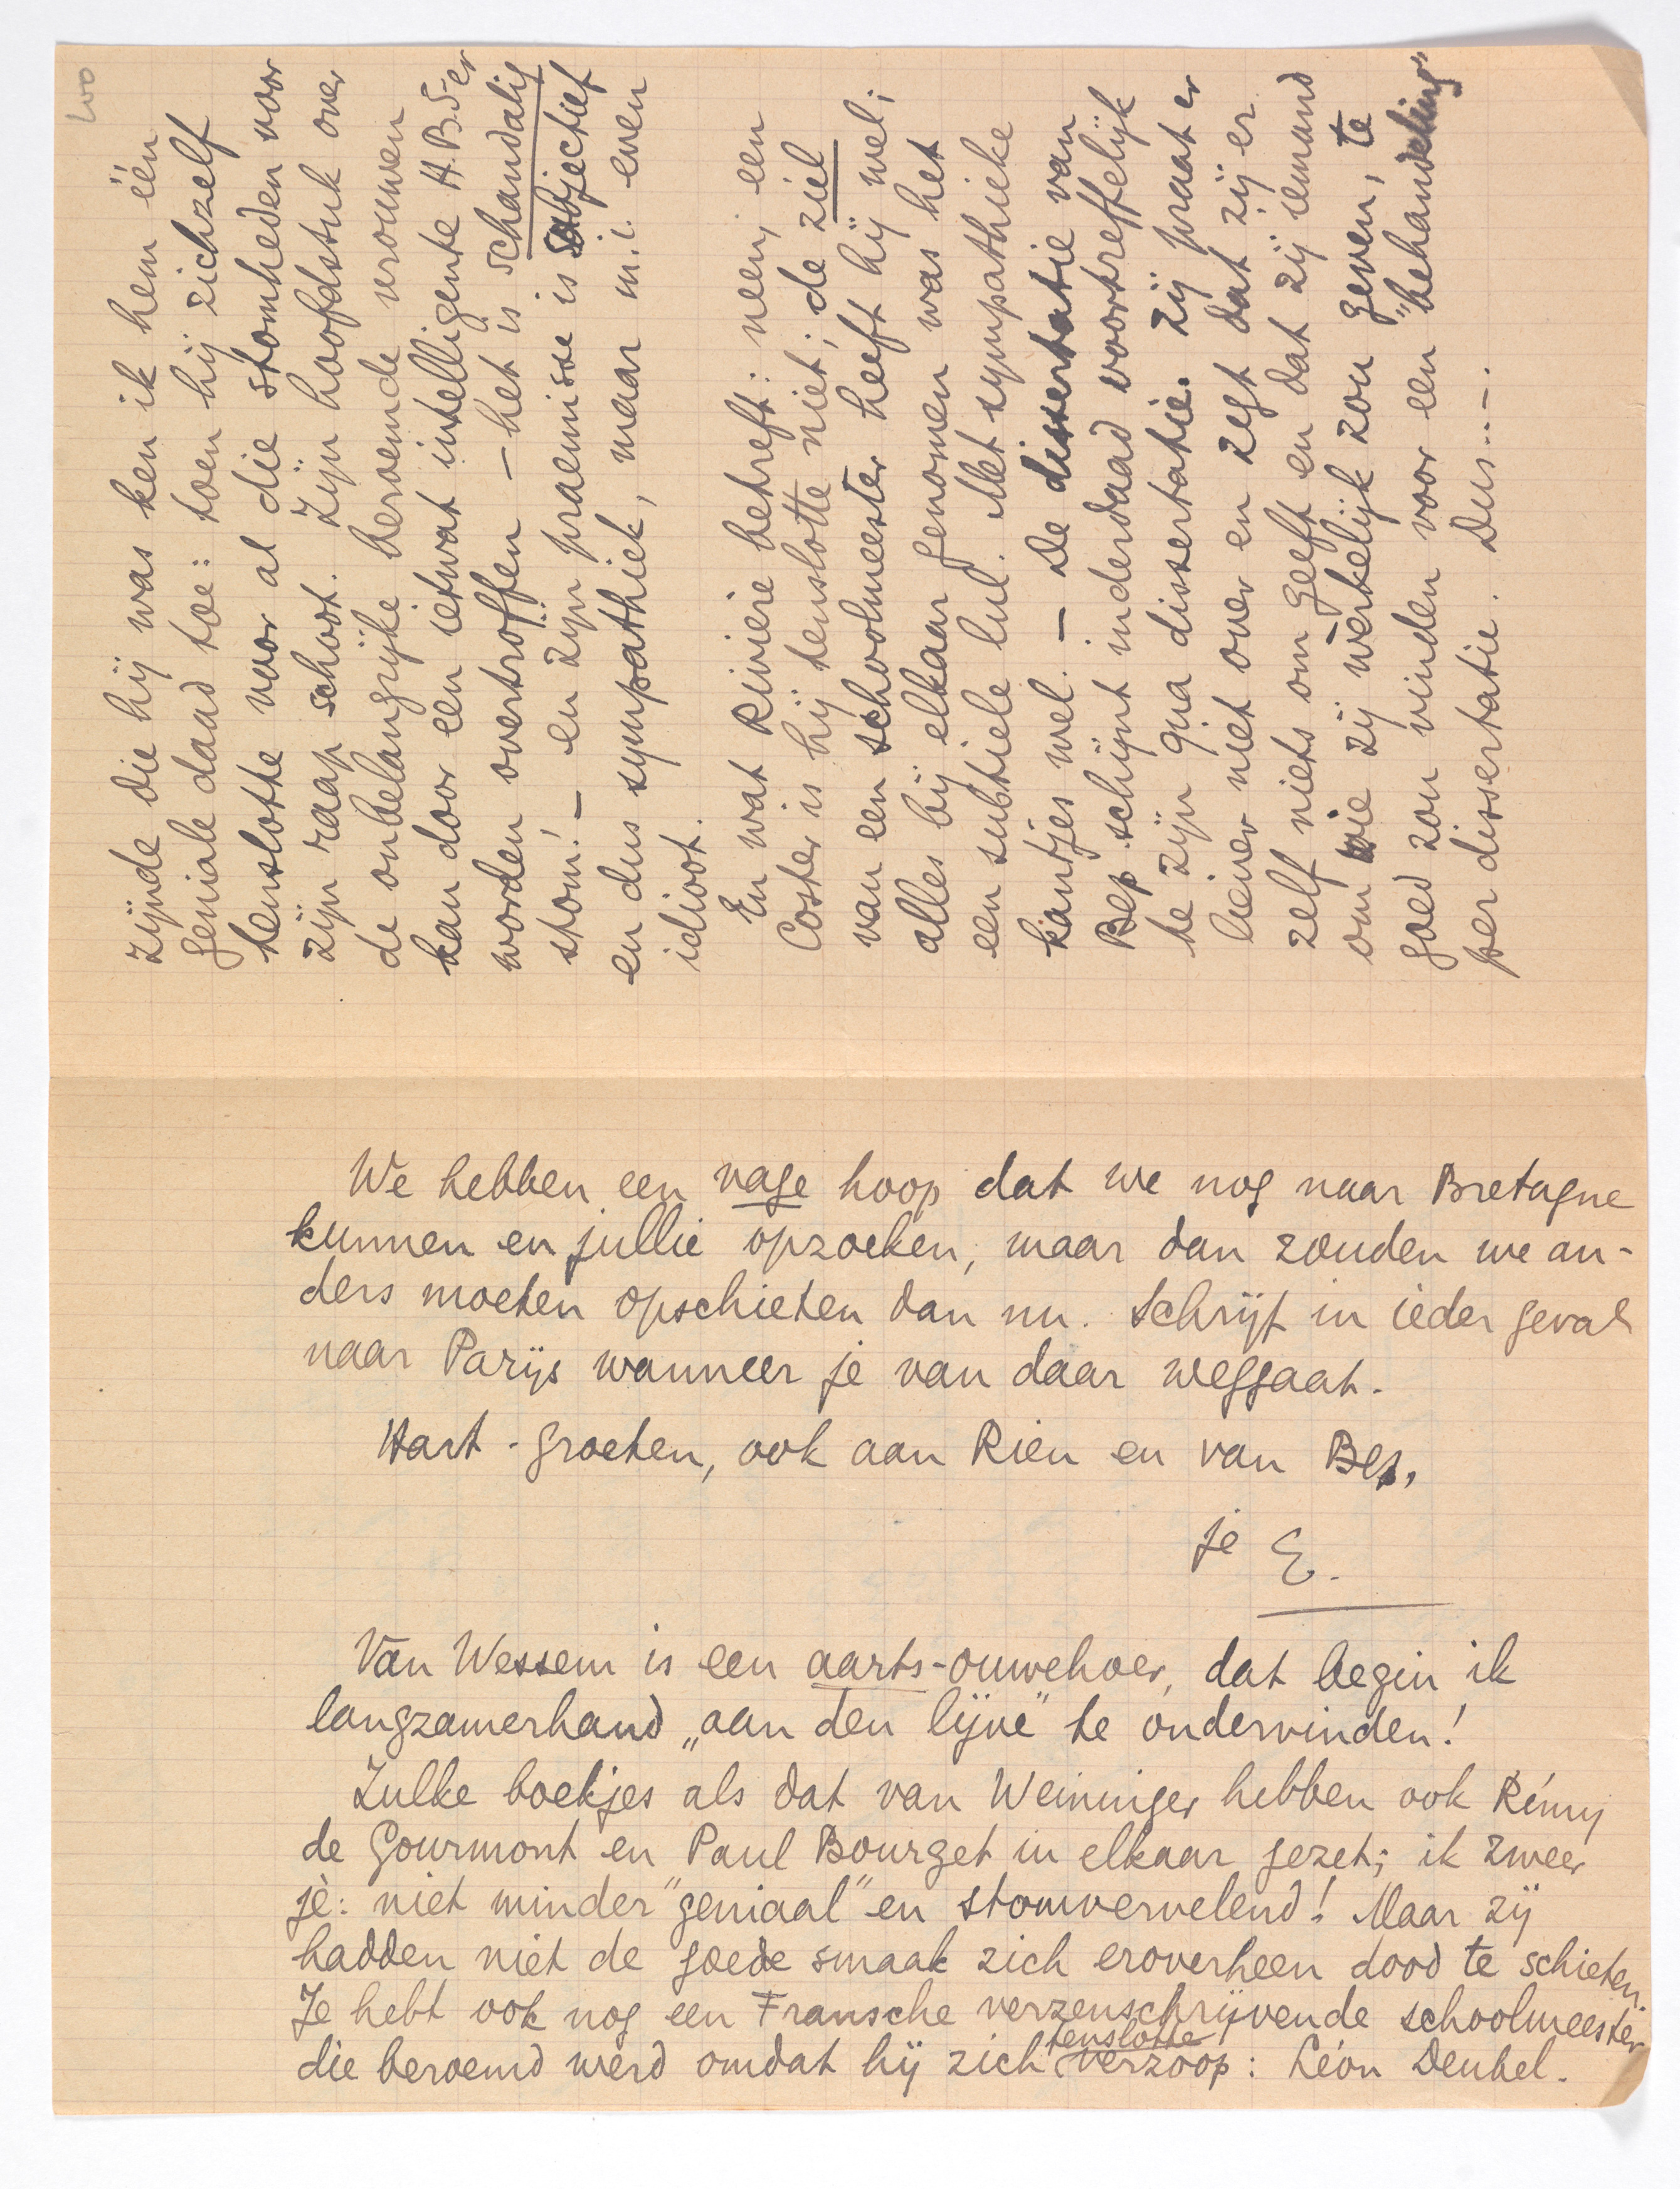 zijnde die hij was ken ik hem één
geniale daad toe: toen hij zichzelf
tenslotte voor al die stomheden voor
zijn raap schoot. Zijn hoofdstuk over
de onbelangrijke beroemde vrouwen
kan door een ietwat intelligente H.B.S-er
worden overtroffen – het is schandalig
stom! – en zijn praemisse is subjectief
en dus sympathiek, maar m.i. even
idioot.
En wat Rivière betreft: neen, een
Coster is hij tenslotte niet; de ziel
van een schoolmeester heeft hij wel;
alles bij elkaar genomen was het
een subtiele lul. Met sympathieke
kantjes wel. – De dissertatie van
Bep schijnt inderdaad voortreffelijk
te zijn qua dissertatie. Zij praat er
liever niet over en zegt dat zij er
zelf niets om geeft en dat zij iemand
om wie zij werkelijk zou geven, te
goed zou vinden voor een "behandeling"
per dissertatie. Dus...–.
We hebben een vage hoop dat we nog naar Bretagne
kunnen en jullie opzoeken, maar dan zouden we an-
ders moeten opschieten dan nu. Schrijf in ieder geval
naar Parijs wanneer je van daar weggaat.
Hart. groeten, ook aan Rien en van Bep,
je E.
Van Wessem is een aarts-ouwehoer, dat begin ik
langzamerhand „aan den lijve" te ondervinden!
Zulke boekjes als dat van Weininger hebben ook Rémy
de Gourmont en Paul Bourget in elkaar gezet; ik zweer
je: niet minder "geniaal" en stomvervelend! Maar zij
hadden niet de goede smaak zich eroverheen dood te schieten.
Je hebt ook nog een Fransche verzenschrijvende schoolmeester
die beroemd werd omdat hij zich tenslotte verzoop: Léon Deubel.